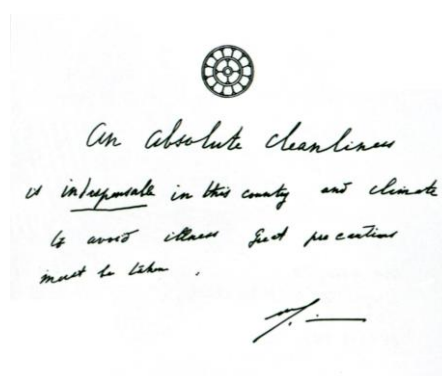 An absolute cleanliness
is indispensable in this country and climate
to avoid illness great precautions
must be taken .